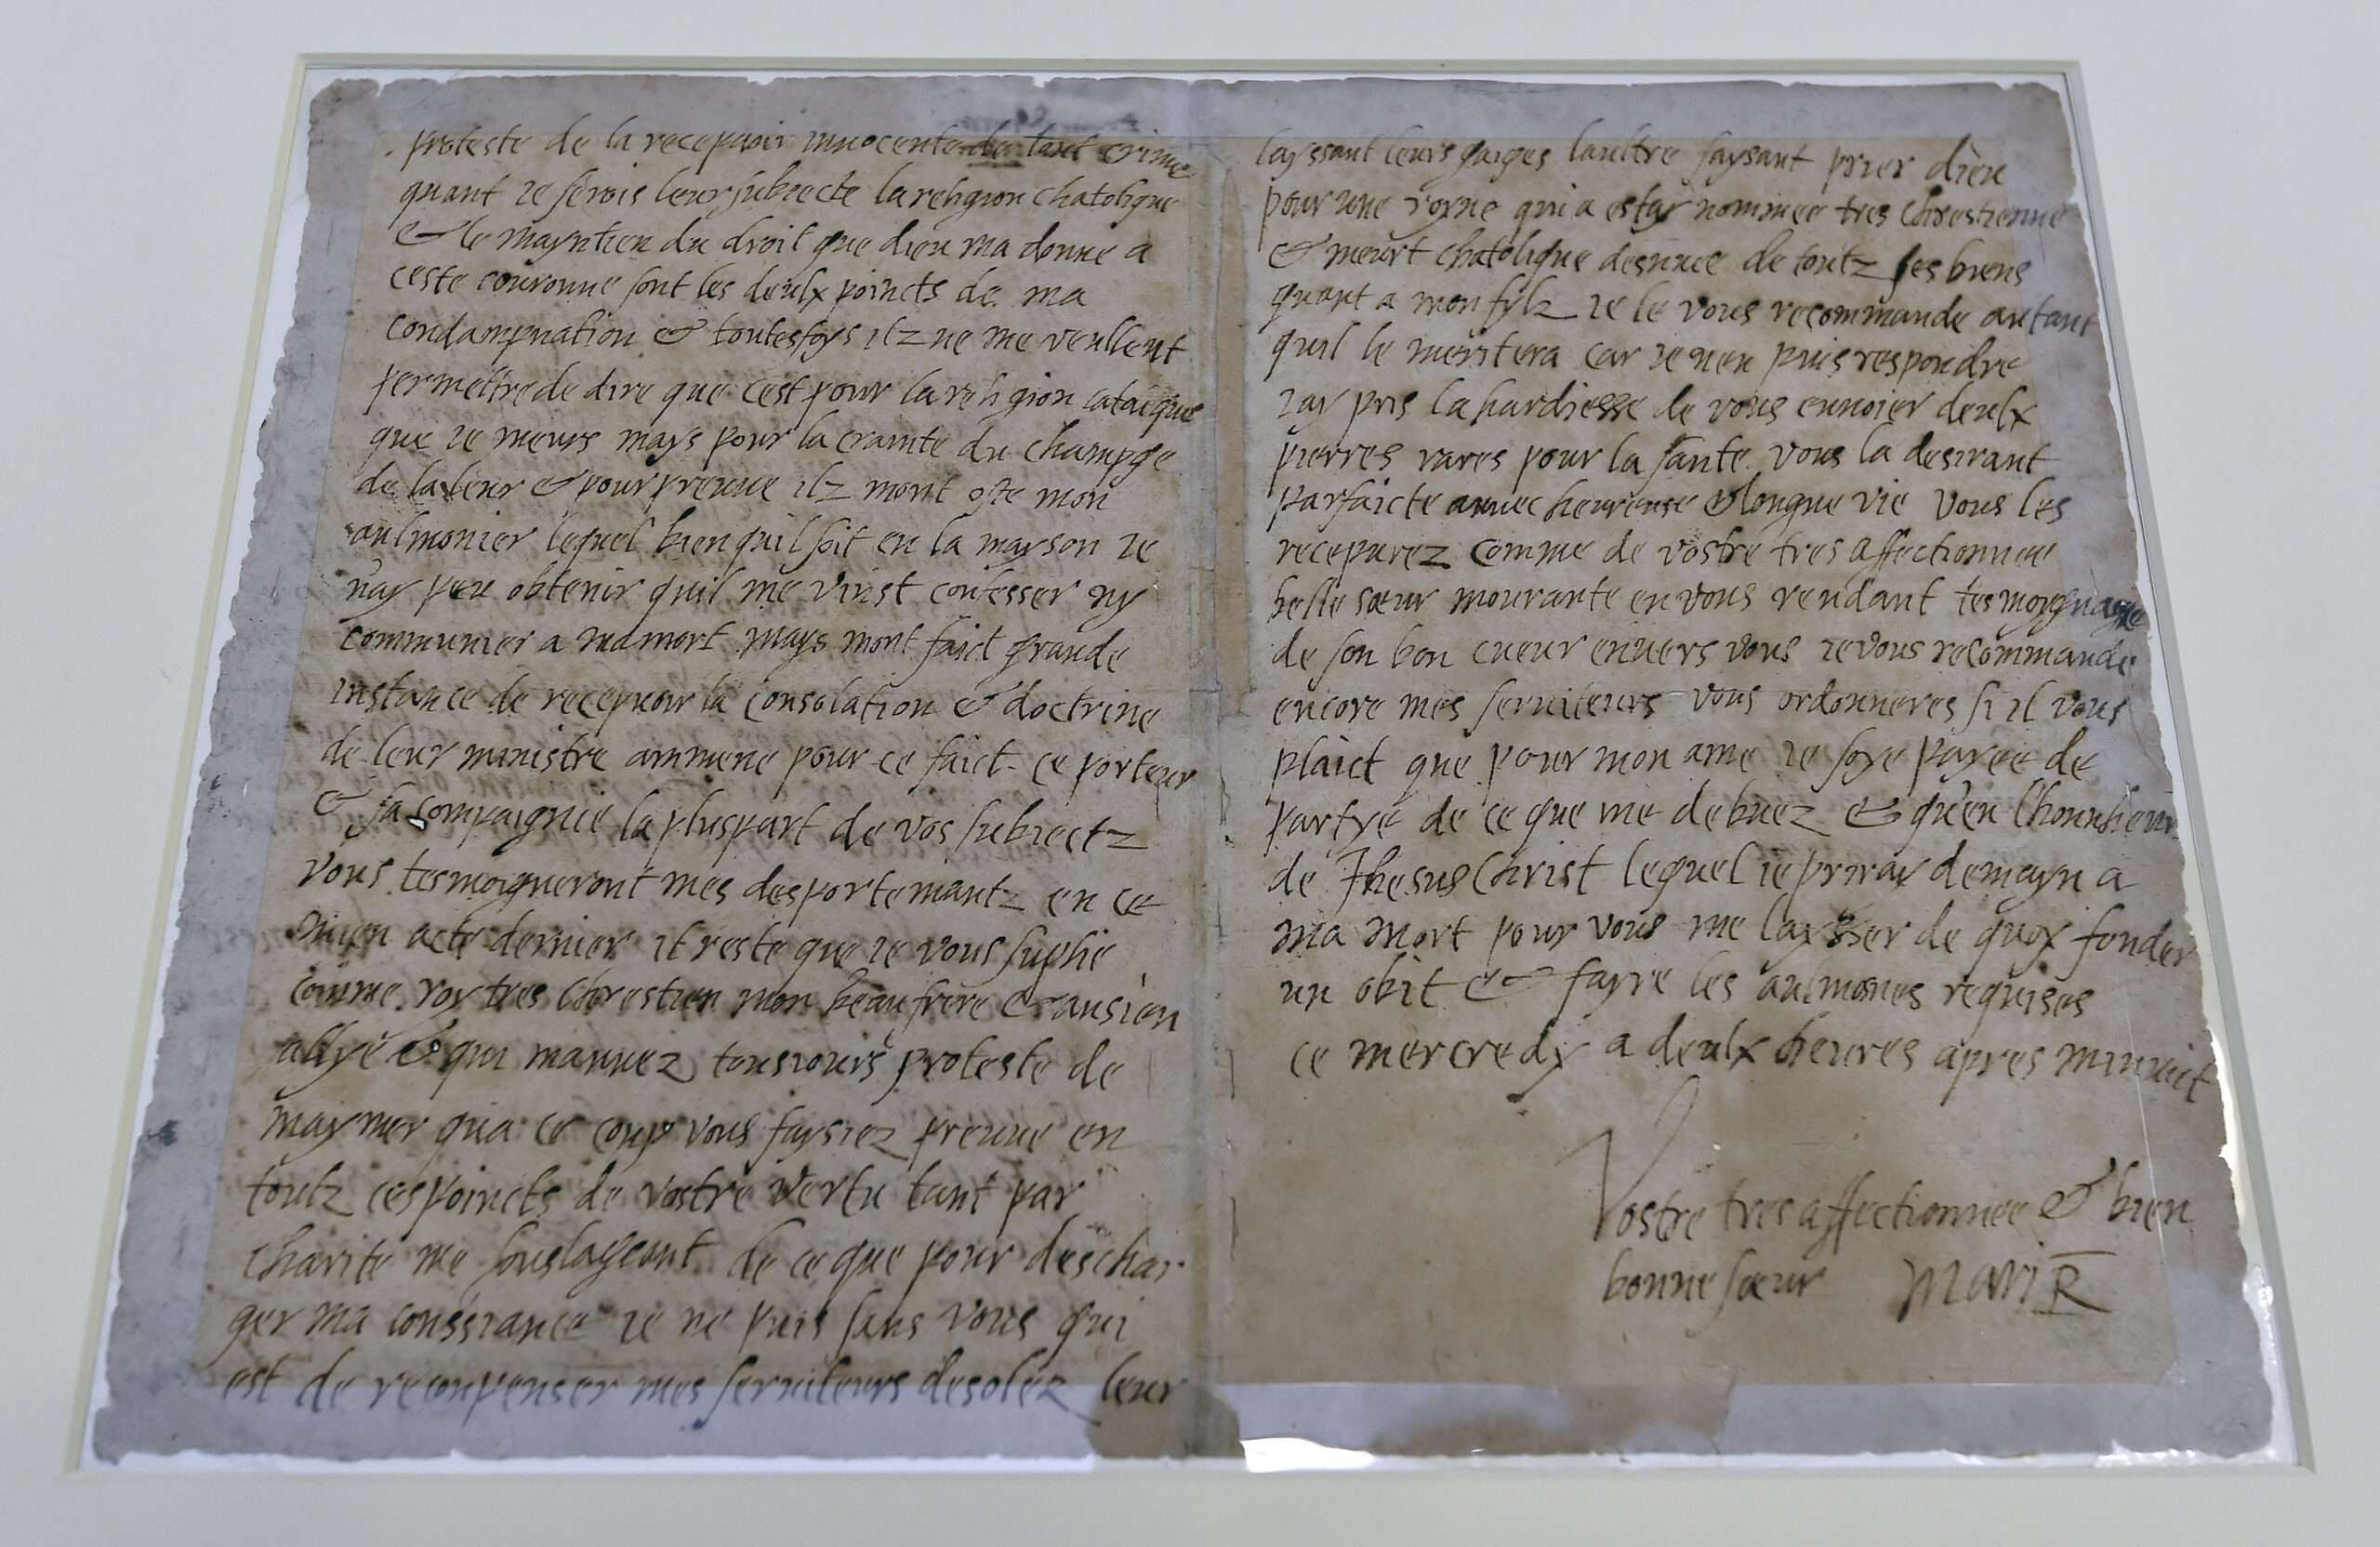 proteste de la recepvoir innocente de tout crime
quant ie serois leur subiecte la religion chatolique
& le mayntien du droit que dieu ma donne a
ceste couronne sont les deulx poincts de ma
condampnation & toutesfoys ilz ne me veullent
permettre de dire que cest pour la religion catolique
que ie meurs mays pour la crainte du champge
de la leur & pour preuue ilz mont oste mon
aulmonier lequel bien quil soit en la mayson ie
nay peu obtenir quil me vinst confesser ny
communier a ma mort mays mont faict grande
instance de recepuoir la consolation & doctrine
de leur ministre ammene pour ce faict ce porteur
& sa compaignie la pluspart de vos subiectz
vous tesmoigneront mes desportemantz en ce
mien acte dernier il reste que ie vous suplie
comme roy tres chrestien mon beau frere & ansien
allye & qui mauuez tousiours proteste de
maymer qua ce coup vous faysiez preuue en
toutz ces poincts de vostre vertu tant par
charite me souslageant de ce que pour deschar
ger ma conssiance ie ne puis sans vous qui
est de reconpenser mes seruiteurs desolez leur
layssant leurs gaiges laultre faysant prier dieu
pour une royne qui a estay nommee tres chrestienne
& meurt chatolique desnuee de toutz ses biens
quant a mon fylz ie le vous recommande autant
quil le meritera car ie nen puis respondre
iay pris la hardiesse de vous enuoier deulx
pierres rares pour la sante vous la desirant
parfaicte auuec heureuse & longue vie vous les
recepurez comme de vostre tres affectionnee
belle sœur mourante en vous rendant tesmoygnage
de son bon cueur enuers vous ie vous recommande
encore mes seruiteurs vous ordonneres si il vous
plaict que pour mon ame ie soye payee de
partye de ce que me debuez & qu'en lhonnheur
de Jhesus Christ lequel ie priray demayn a
ma mort pour vous me laysser de quoy fonder
un obit & fayre les aulmones requises
ce mercredy a deulx heures apres minuict
Vostre tres affectionnee & bien
bonne sœur Mari R